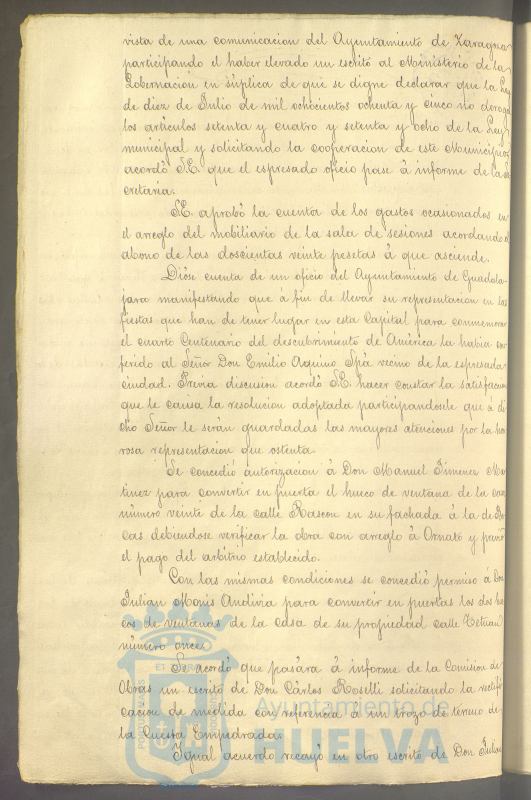 vista de una comunicacion del Ayuntamiento de Zaragoza
participando el haber elevado un escrito al Ministerio de la
Gobernacion en súplica de que se digne declarar que la Ley
de diez de Julio de mil ochocientos ochenta y cinco no deroga
los articulos setenta y cuatro y setenta y ocho de la Ley
municipal y solicitando la cooperacion de este Municipio,
acordó S.E. que el espresado oficio pase á informe de la Se
cretaria.
S.E. aprobó la cuenta de los gastos ocasionados en
el arreglo del mobiliario de la sala de sesiones acordando el
abono de las doscientas veinte pesetas á que asciende.
Dióse cuenta de un oficio del Ayuntamiento de Guadala-
jara manifestando que á fin de llevar su representacion en las
fiestas que han de tener lugar en esta Capital para conmemorar
el cuarto Centenario del descubrimiento de América la habia con
ferido al Señor Don Emilio Aquino Spá vecino de la espresada
ciudad. Previa discusion acordó S.E. hacer constar la satisfaccion
que le causa la resolucion adoptada participandosele que á di
cho Señor le serán guardadas las mayores atenciones por la hon
rosa representacion que ostenta.
Se concedió autorizacion á Don Manuel Jimenez Mar
tinez para convertir en puerta el hueco de ventana de la casa
número veinte de la calle Rascon en su fachada á la de
cas debiendose verificar la obra con arreglo á Ornato y previo
el pago del arbitrio establecido.
Con las mismas condiciones se concedió permiso á Don
Julian Mois Andivia para convertir en puertas los dos hue
cos de ventanas de la casa de su propiedad calle Tetuan
número once.
Se acordó que pasára á informe de la Comision de
Obras un escrito de Don Cárlos Roselli solicitando la rectifi
cacion de medida con referencia á un trozo de terreno de
la Cuesta Empedrada.
Igual acuerdo recayó en otro escrito de Don Julian
Ayuntamiento de
HUELVA